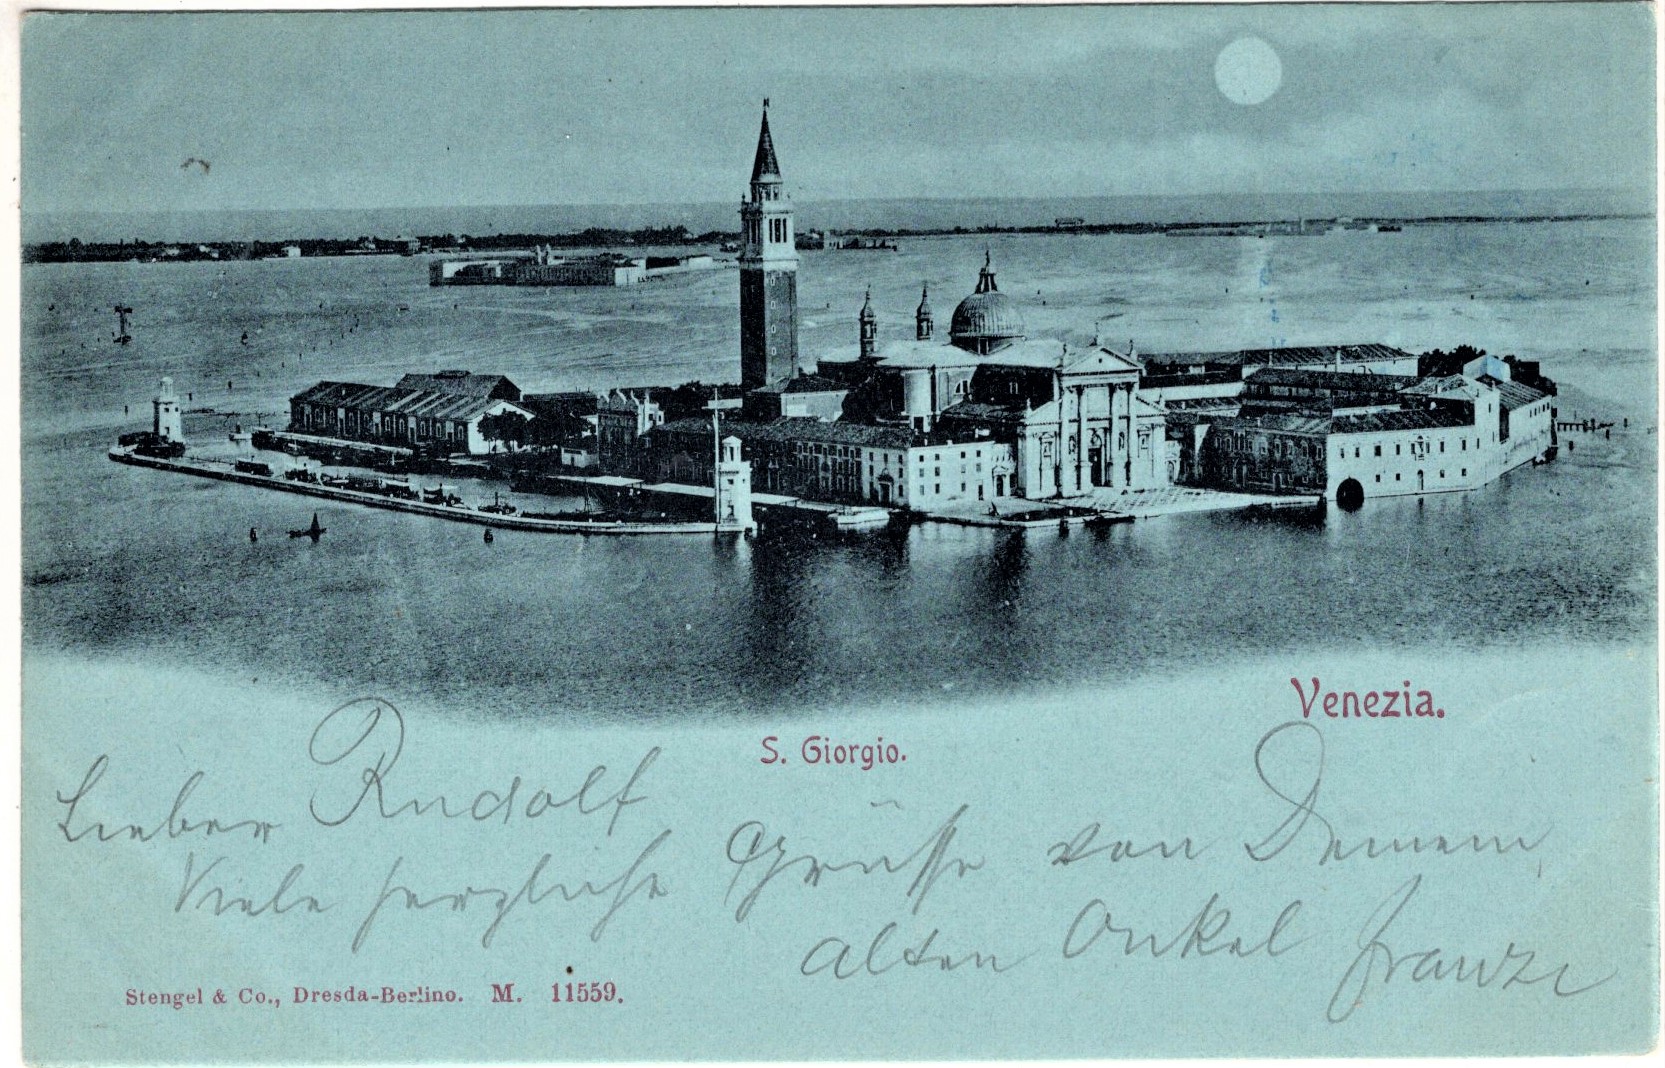 Venezia.
S. Giorgio.
Lieber Rudolf
Viele herzliche Grüsse von Deinem
alten Onkel Franzi
Stengel & Co., Dresda-Berlino. M. 11559.